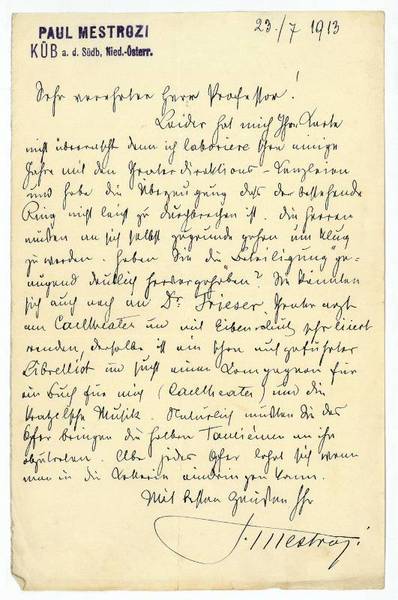 PAUL MESTROZI
KÜB a. d. Südb, Nied.-Österr.
23./7 1913
Sehr verehrter Herr Professor!
Leider hat mich Ihre Karte
nicht überrascht denn ich laboriere schon einige
Jahre mit den Theaterdirektions-Kanzleien
und habe die Überzeugung dass der bestehende
Ring nicht leicht zu durchbrechen ist. Die Herren
müssen an sich selbst zugrunde gehen um klug
zu werden. Haben Sie die Beteiligung ge-
nügend deutlich hervorgehoben? Sie könnten
sich auch noch an Dr. Frieser, Theaterarzt
am Carltheater und mit Eibenschütz sehr liiert
wenden, derselbe ist ein schon aufgeführter
Librettist und sucht einen Compagnon für
ein Buch für mich (Carltheater) und die
Musik. Natürlich müssten Sie das
Opfer bringen die halben Tantièmen an ihn
abzutreten. Aber jedes Opfer lohnt sich wenn
man in die eindringen kann.
Mit besten Grüßen Ihr
P. Mestrozi